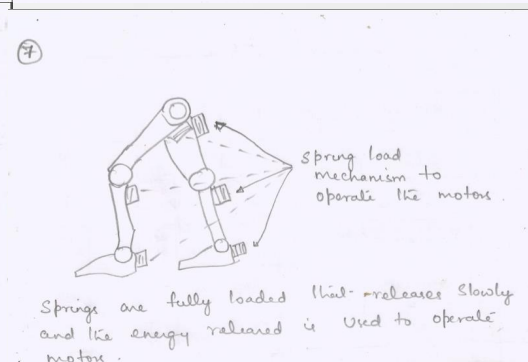 7
Spring load
mechanism to
operate the motors.
Springs are fully loaded that releases slowly
and the energy released is used to operate
motors.